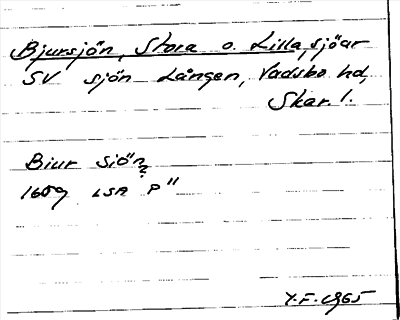 Bjursjön, Stora o. Lilla, sjöar
SV sjön Lången, Vadsbo hd,
Skar. l.
Biur Siön?
1659 LSA P"
Y.F. 1965